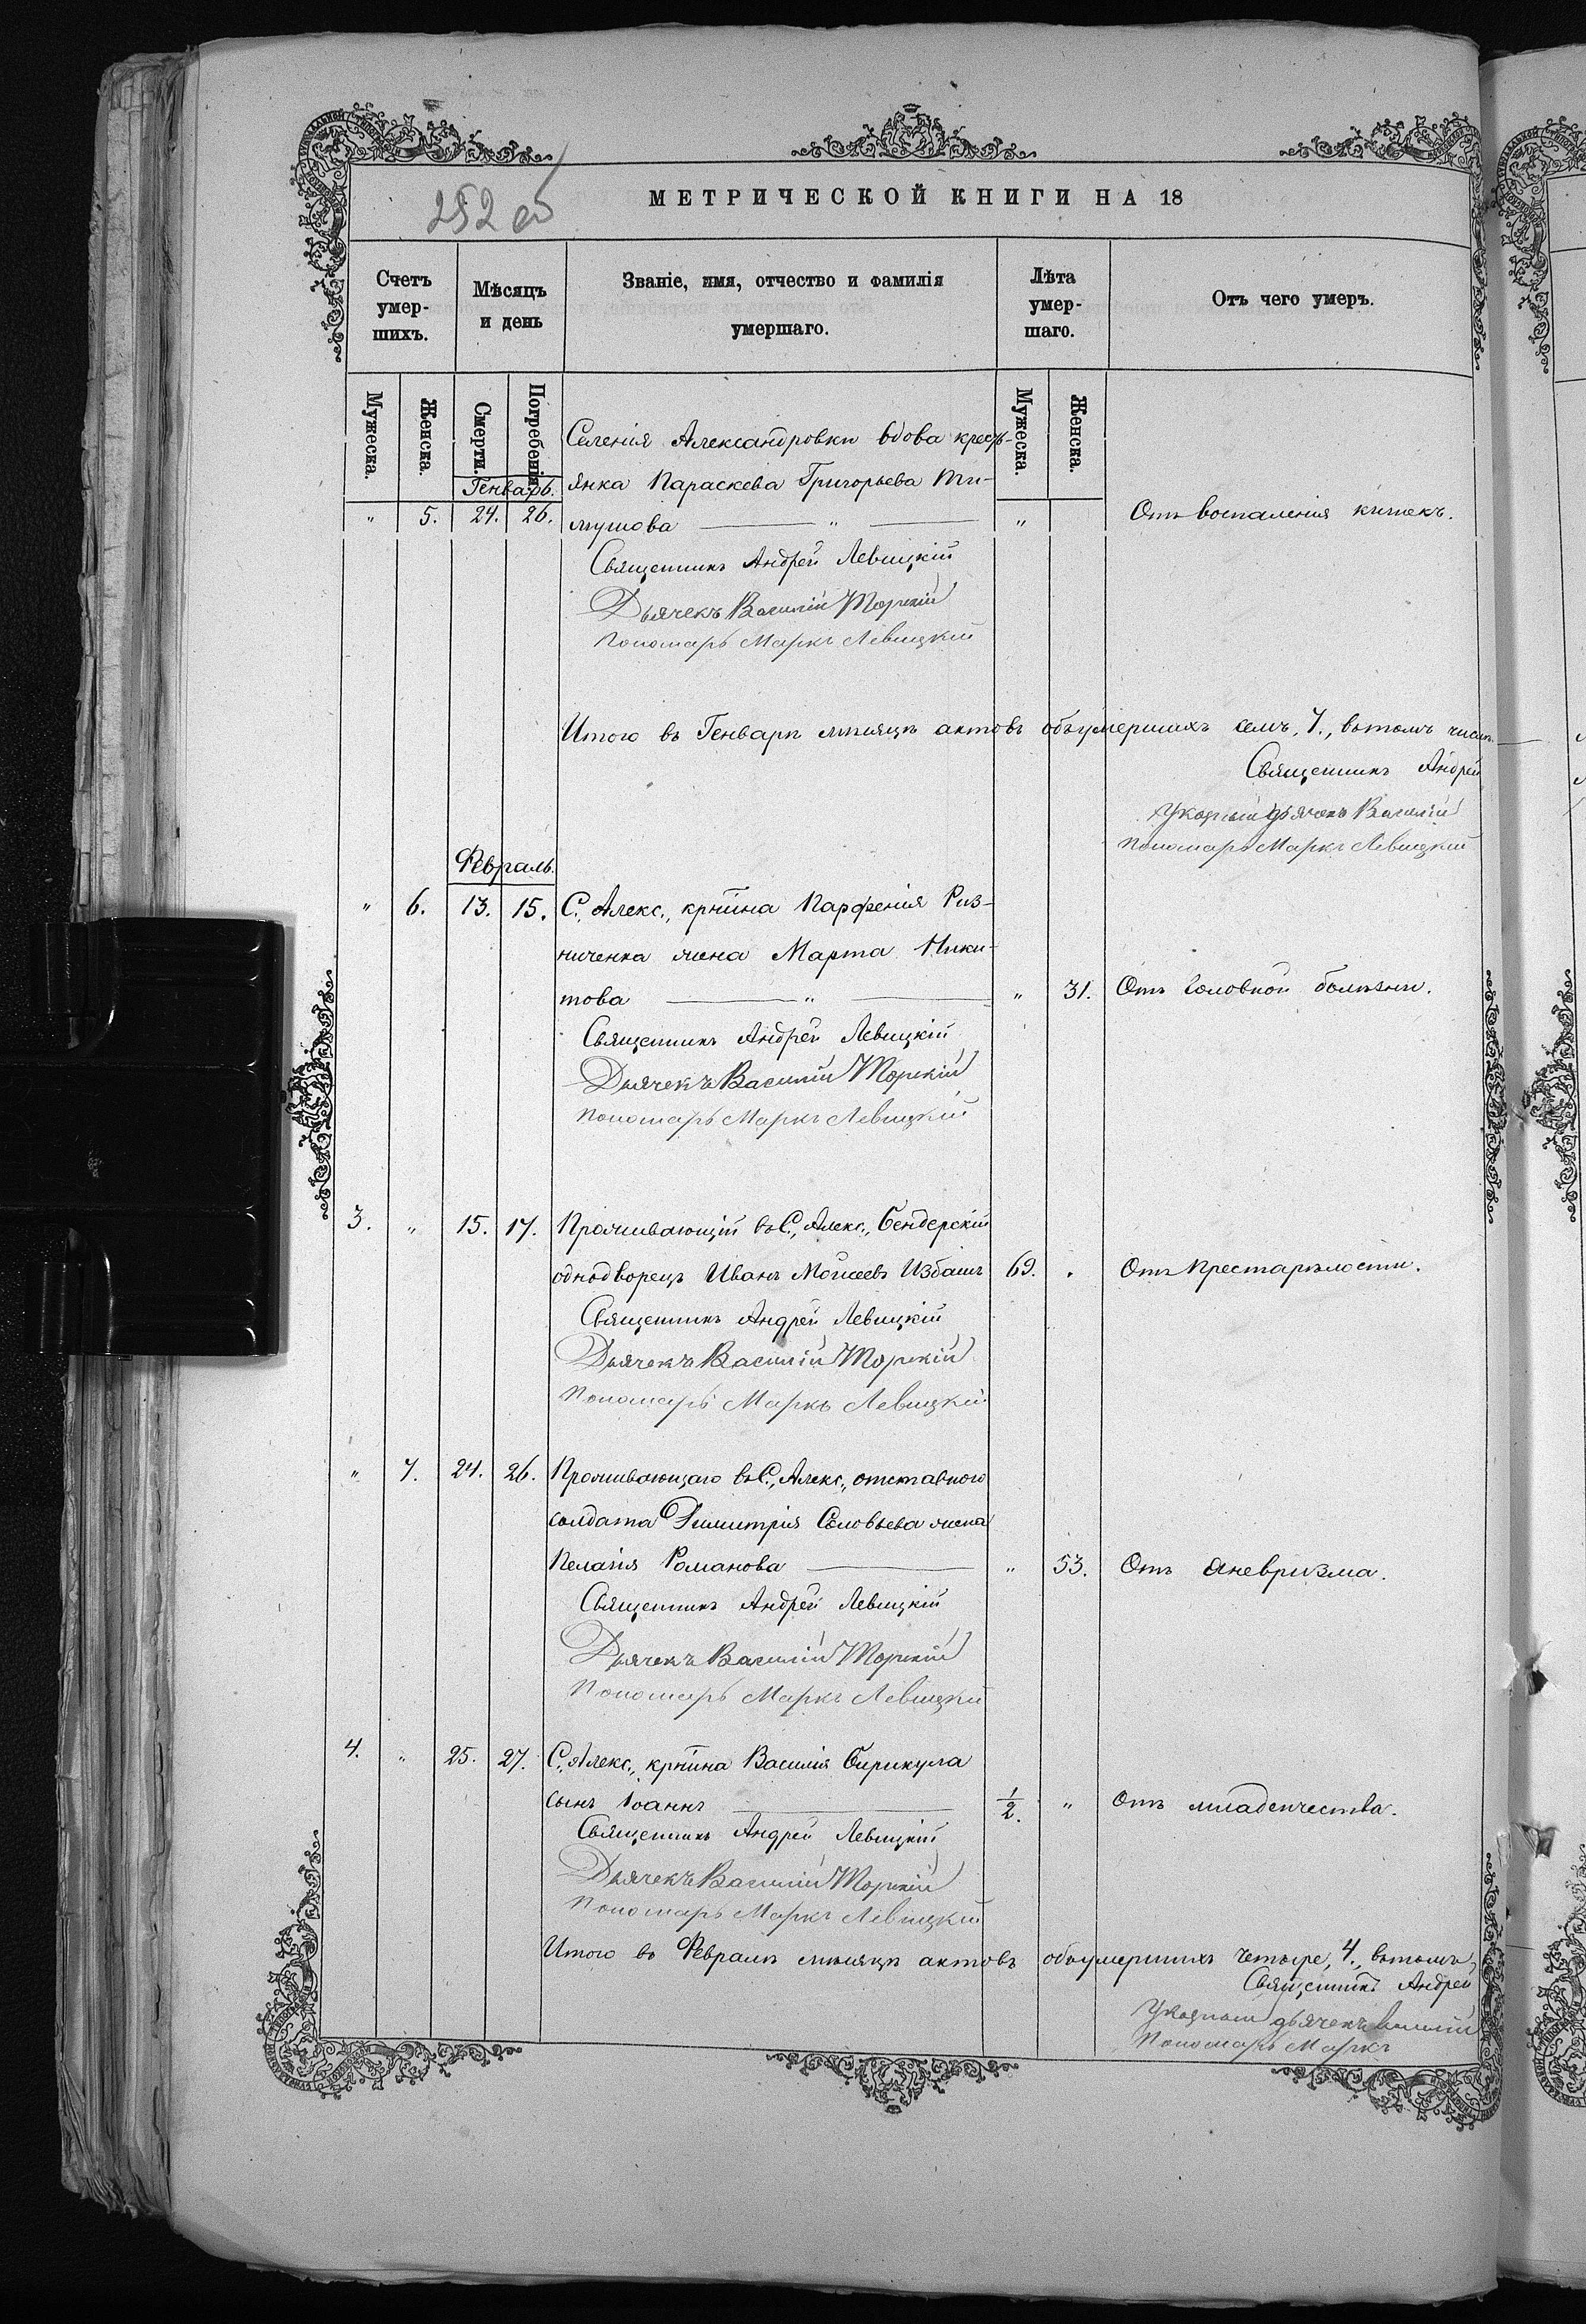 252 об
МЕТРИЧЕСКОЙ КНИГИ НА 18
Счетъ умер-шихъ.
Мѣсяцъ и день
Званіе, имя, отчество и фамилія умершаго.
Лѣта умер-шаго.
Отъ чего умеръ.
Мужеска.
Женска.
Смерти.
Погребенія.
Мужеска.
Женска.
Генварь.
Селенія Александровки вдова кресть-
янка Параскева Григорьева Ти-
" 5. 24. 26. мушова — " — " Отъ воспаленія кишекъ.
Священникъ Андрей Левицкій
Дьячекъ Василій Торскій
Пономарь Маркъ Левицкій
Итого въ Генварѣ мѣсяцѣ актовъ объумершихъ семъ, 7., втомъ числѣ
Священникъ Андрей
Указный дьячекъ Василій
Пономарь Маркъ Левицкій
Февраль.
" 6. 13. 15. С. Алекс., крѣтина Парфенія Риз-
ниченка жена Марта Ники-
това — " — " 31. Отъ головной болѣзни.
Священникъ Андрей Левицкій
Дьячекъ Василій Торскій
Пономарь Маркъ Левицкій
3. " 15. 17. Проживающій въ С., Алекс., Бендерскій
однодворецъ Иванъ Моисеевъ Избашъ 69. " Отъ престарѣлости.
Священникъ Андрей Левицкій
Дьячекъ Василій Торскій
Пономарь Маркъ Левицкій
" 7. 24. 26. Проживающаго въ С., Алекс., отставного
солдата Димитрія Соловьева жена
Пелагія Романова — " 53. Отъ аневризма.
Священникъ Андрей Левицкій
Дьячекъ Василій Торскій
Пономарь Маркъ Левицкій
4. " 25. 27. С., Алекс., крѣтина Василія Бирикула
сынъ Іоаннъ — 1/2. " Отъ младенчества.
Священникъ Андрей Левицкій
Дьячекъ Василій Торскій
Пономарь Маркъ Левицкій
Итого въ Февралѣ мѣсяцѣ актовъ объумершихъ четыре, 4., втомъ
Священникъ Андрей
Указный дьячекъ Василій
Пономарь Маркъ